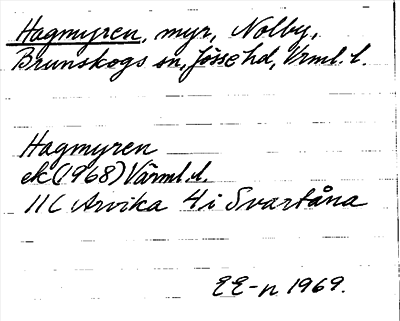 Hagmyren, myr, Nolby,
Brunskogs sn, Jösse hd, Vrml. l.
Hagmyren
ek (1968) Värml. l.
11C Arvika 4 i Svartåna
EE-n 1969.